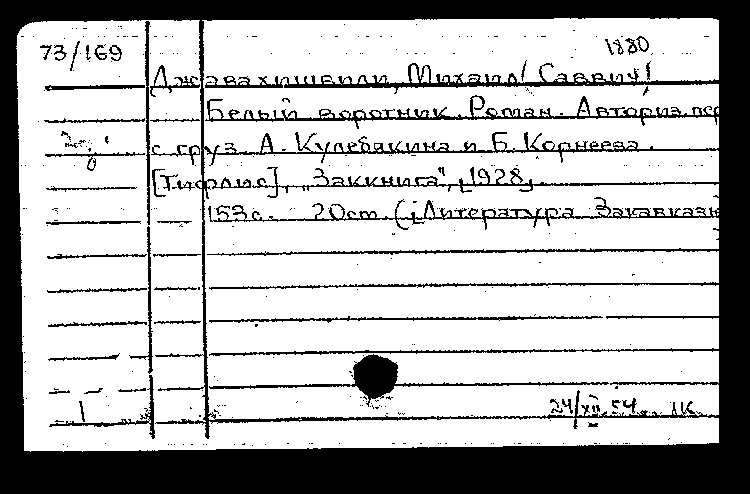 73/169
1880
Джавахишвили, Михаил [Саввич]
Белый воротник. Роман. Авториз. пер
с груз. А. Кулебякина и Б. Корнеева.
[Тифлис], "Заккнига", [1928]
153 с. 20 cm. (Литература Закавказ
24/XII 54